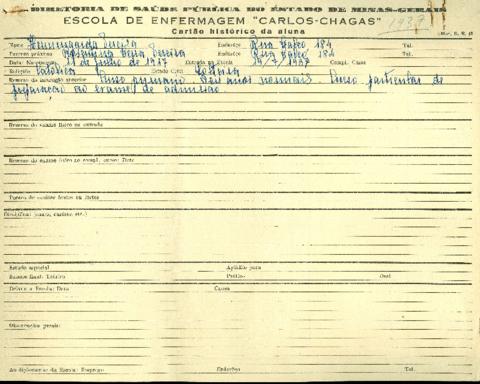 DIRETORIA DE SAÚDE PÚBLICA DO ESTADO DE MINAS-GERAIS
ESCOLA DE ENFERMAGEM "CARLOS-CHAGAS"
1937
Cartão histórico da aluna
Nome Pereira Endereço Rua 184 Tel.
Parente próximo Pereira Endereço Rua 184 Tel.
Data: Nascimento 11 de julho de 1917 Entrada na Escola 19/7/1937 Compl. Curso
Religião Católica Estado Civil Solteira
Resumo da instrução anterior Curso primário. anos normais. Curso particular de
preparação ao exame de admissão
Resumo do exame físico na entrada
Resumo do exame físico ao compl. curso: Data
Estado especial Aptidão para
Exames finais: Teórico Prático Oral
Deixou a Escola: Data Causa
Observações gerais:
Ao diplomar-se da Escola: Emprego Endereço Tel.